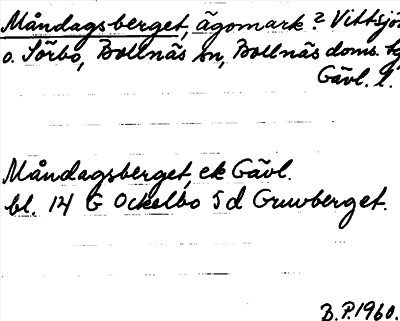 Måndagsberget, ägomark? Vittsjö
o. Sörbo, Bollnäs sn, Bollnäs doms. hg
Gävl. l.
Måndagsberget, ek Gävl.
bl. 14 G Ockelbo 5 d Gruvberget.
B.P. 1960.